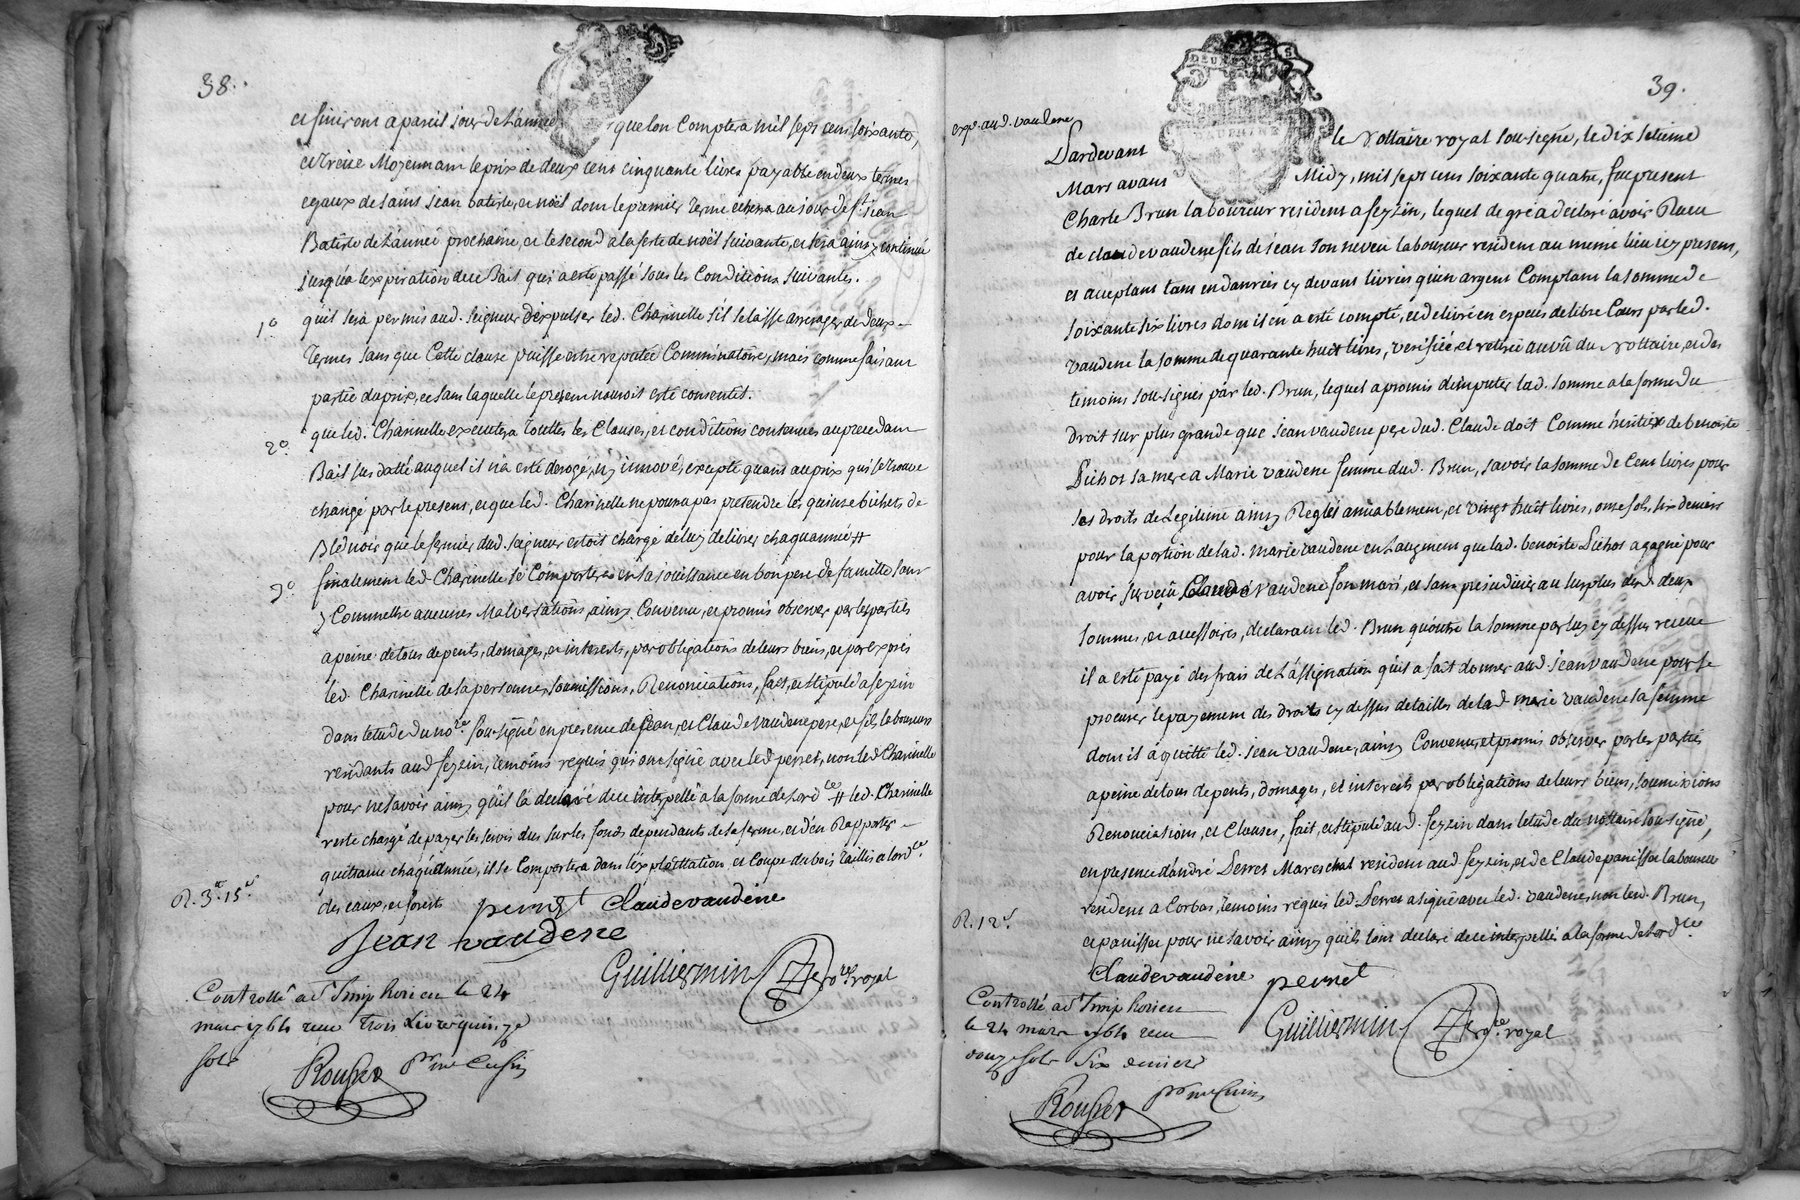 38.
et finiront a pareil jour de L'année que lon Comptera mil sept cent soixante,
et treize Moyennant le prix de deux cent cinquante Livres payable en deux termes
egaux de saint Jean batiste, et noël dont le premier terme echera au jour de st. jean
Batiste de L'anneé prochaine, et le second a la feste de noël suivante, et sera ainsy continué
jusqu'a l'expiration du Bail qui a esté passé sous les Conditions suivantes.
1º
qu'il sera permis aud. seigneur d'expulser led. Charinelle s'il se laisse arrerager de deux
termes sans que Cette clause puisse estre reputée Comminatoire, mais comme faisant
partie du prix, et sans laquelle le present n'auroit esté consentit.
2º
que led. Charinelle executera touttes les Clauses, et conditions contenues au precedant
Bail sus datté auquel il n'a esté derogé, ny innové, excepté quant au prix qui se trouve
changé par le present, et que led. Charinelle ne pourra pas pretendre les quinze bichets de
Bled noir que le fermier dud. seigneur estoit chargé de luy delivrer chaqu'année #
3º
finalement led. Charinelle se Comportera en sa jouissance en bon pere de famille sans
y Commettre aucunes Malversations, ainsy Convenu, et promis observer par les parties
a peine de tous depents, domages, et interests, par obligations de leurs biens, et par exprés
led. Charinelle de sa personne, soumissions, Renonciations, fait, et stipulé a seyzin
dans letude du nore. sousigné en presence de Jean, et Claude Vaudene pere, et fils laboureurs
residants aud. seyzin, temoins requis qui ont signé avec led. perret, non led. Charinelle
pour ne savoir ainsy qu'il la declaré de ce interpellé a la forme de Lordce. # led. Charinelle
reste chargé de payer les servis dus sur les fonds dependants de la ferme, et d'en Rapporter
quittance chaqu'année, il se Comportera dans l'exploittation et Coupe du bois Taillis a lordce.
des eaux, et forests
perret Claude vaudene
R. 3# 15s.
Jean vaudene
Guilliermin nore. royal
Controllé a st Simphorien le 24
mars 1764 reçu trois Livres quinze
sols
Rousset pr me Cusin
39.
expé. aud. vaudene
Pardevant le Nottaire royal sousigné, le dix septieme
Mars avant Midy, mil sept cens soixante quatre, fut present
Charle Brun laboureur resident a seyzin, lequel de gré a declaré avoir Receu
de claude vaudene fils de jean son neveu laboureur resident au meme lieu icy present,
et acceptant tant en danrées cy devant livrées qu'en argent Comptant la somme de
soixante six livres dont il en a esté compté, et delivré en especes de libre Cours par led.
Vaudene la somme de quarante huit livres, verifiée et retirée au vû du Nottaire, et des
temoins sousignés par led. Brun, lequel a promis d'imputer lad. somme a la forme du
droit sur plus grande que jean vaudene pere dud. Claude doit Comme héritier de benoiste
Pichot sa mere a Marie vaudene femme dud. Brun, savoir la somme de Cent livres pour
ses droits de Legitime ainsy Reglés amiablement, et vingt huit livres, onze sols, six deniers
pour la portion de lad. marie vaudene en Laugment que lad. benoiste Pichot a gagné pour
avoir survécû Claude Vaudene son mari, et sans prejudicier au surplus desd. deux
sommes, et accessoires, declarant led. Brun qu'outre la somme par luy cy dessus receue
il a esté payé des frais de L'assignation qu'il a fait donner aud. jean vaudene pour se
procurer le payement des droits cy dessus detaillés de lad. marie vaudene sa femme
dont il a quitté led. jean vaudene, ainsy Convenu, et promis observer par les parties
a peine de tous depents, domages, et interests par obligations de leurs biens, soumissions
Renonciations, et Clauses, fait, et stipulé aud. seyzin dans letude du nottaire sousigné,
en presence d'andré Perret Mareschal resident aud. seyzin, et de Claude panisset laboureur
resident a Corbas, temoins requis led. Perret a signé avec led. vaudene, non led. Brun,
et panisset pour ne savoir ainsy qu'ils l'ont declaré de ce interpellés a la forme de Lordce.
R. 12s.
Claude vaudene perret
Guilliermin nore. royal
Controllé a st Simphorien
le 24 mars 1764 reçu
douze sols six deniers
Rousset pr me Cusin